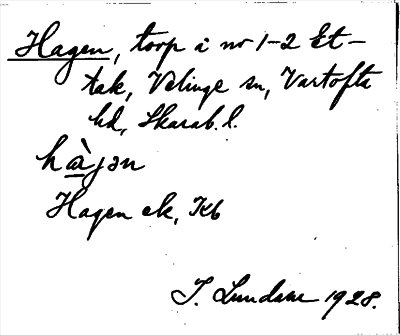 Hagen, torp i nr 1-2 Et-
tak, Velinge sn, Vartofta
hd, Skarab. l.
hàjən
Hagen ek, Kb
I. Lundahl 1928.